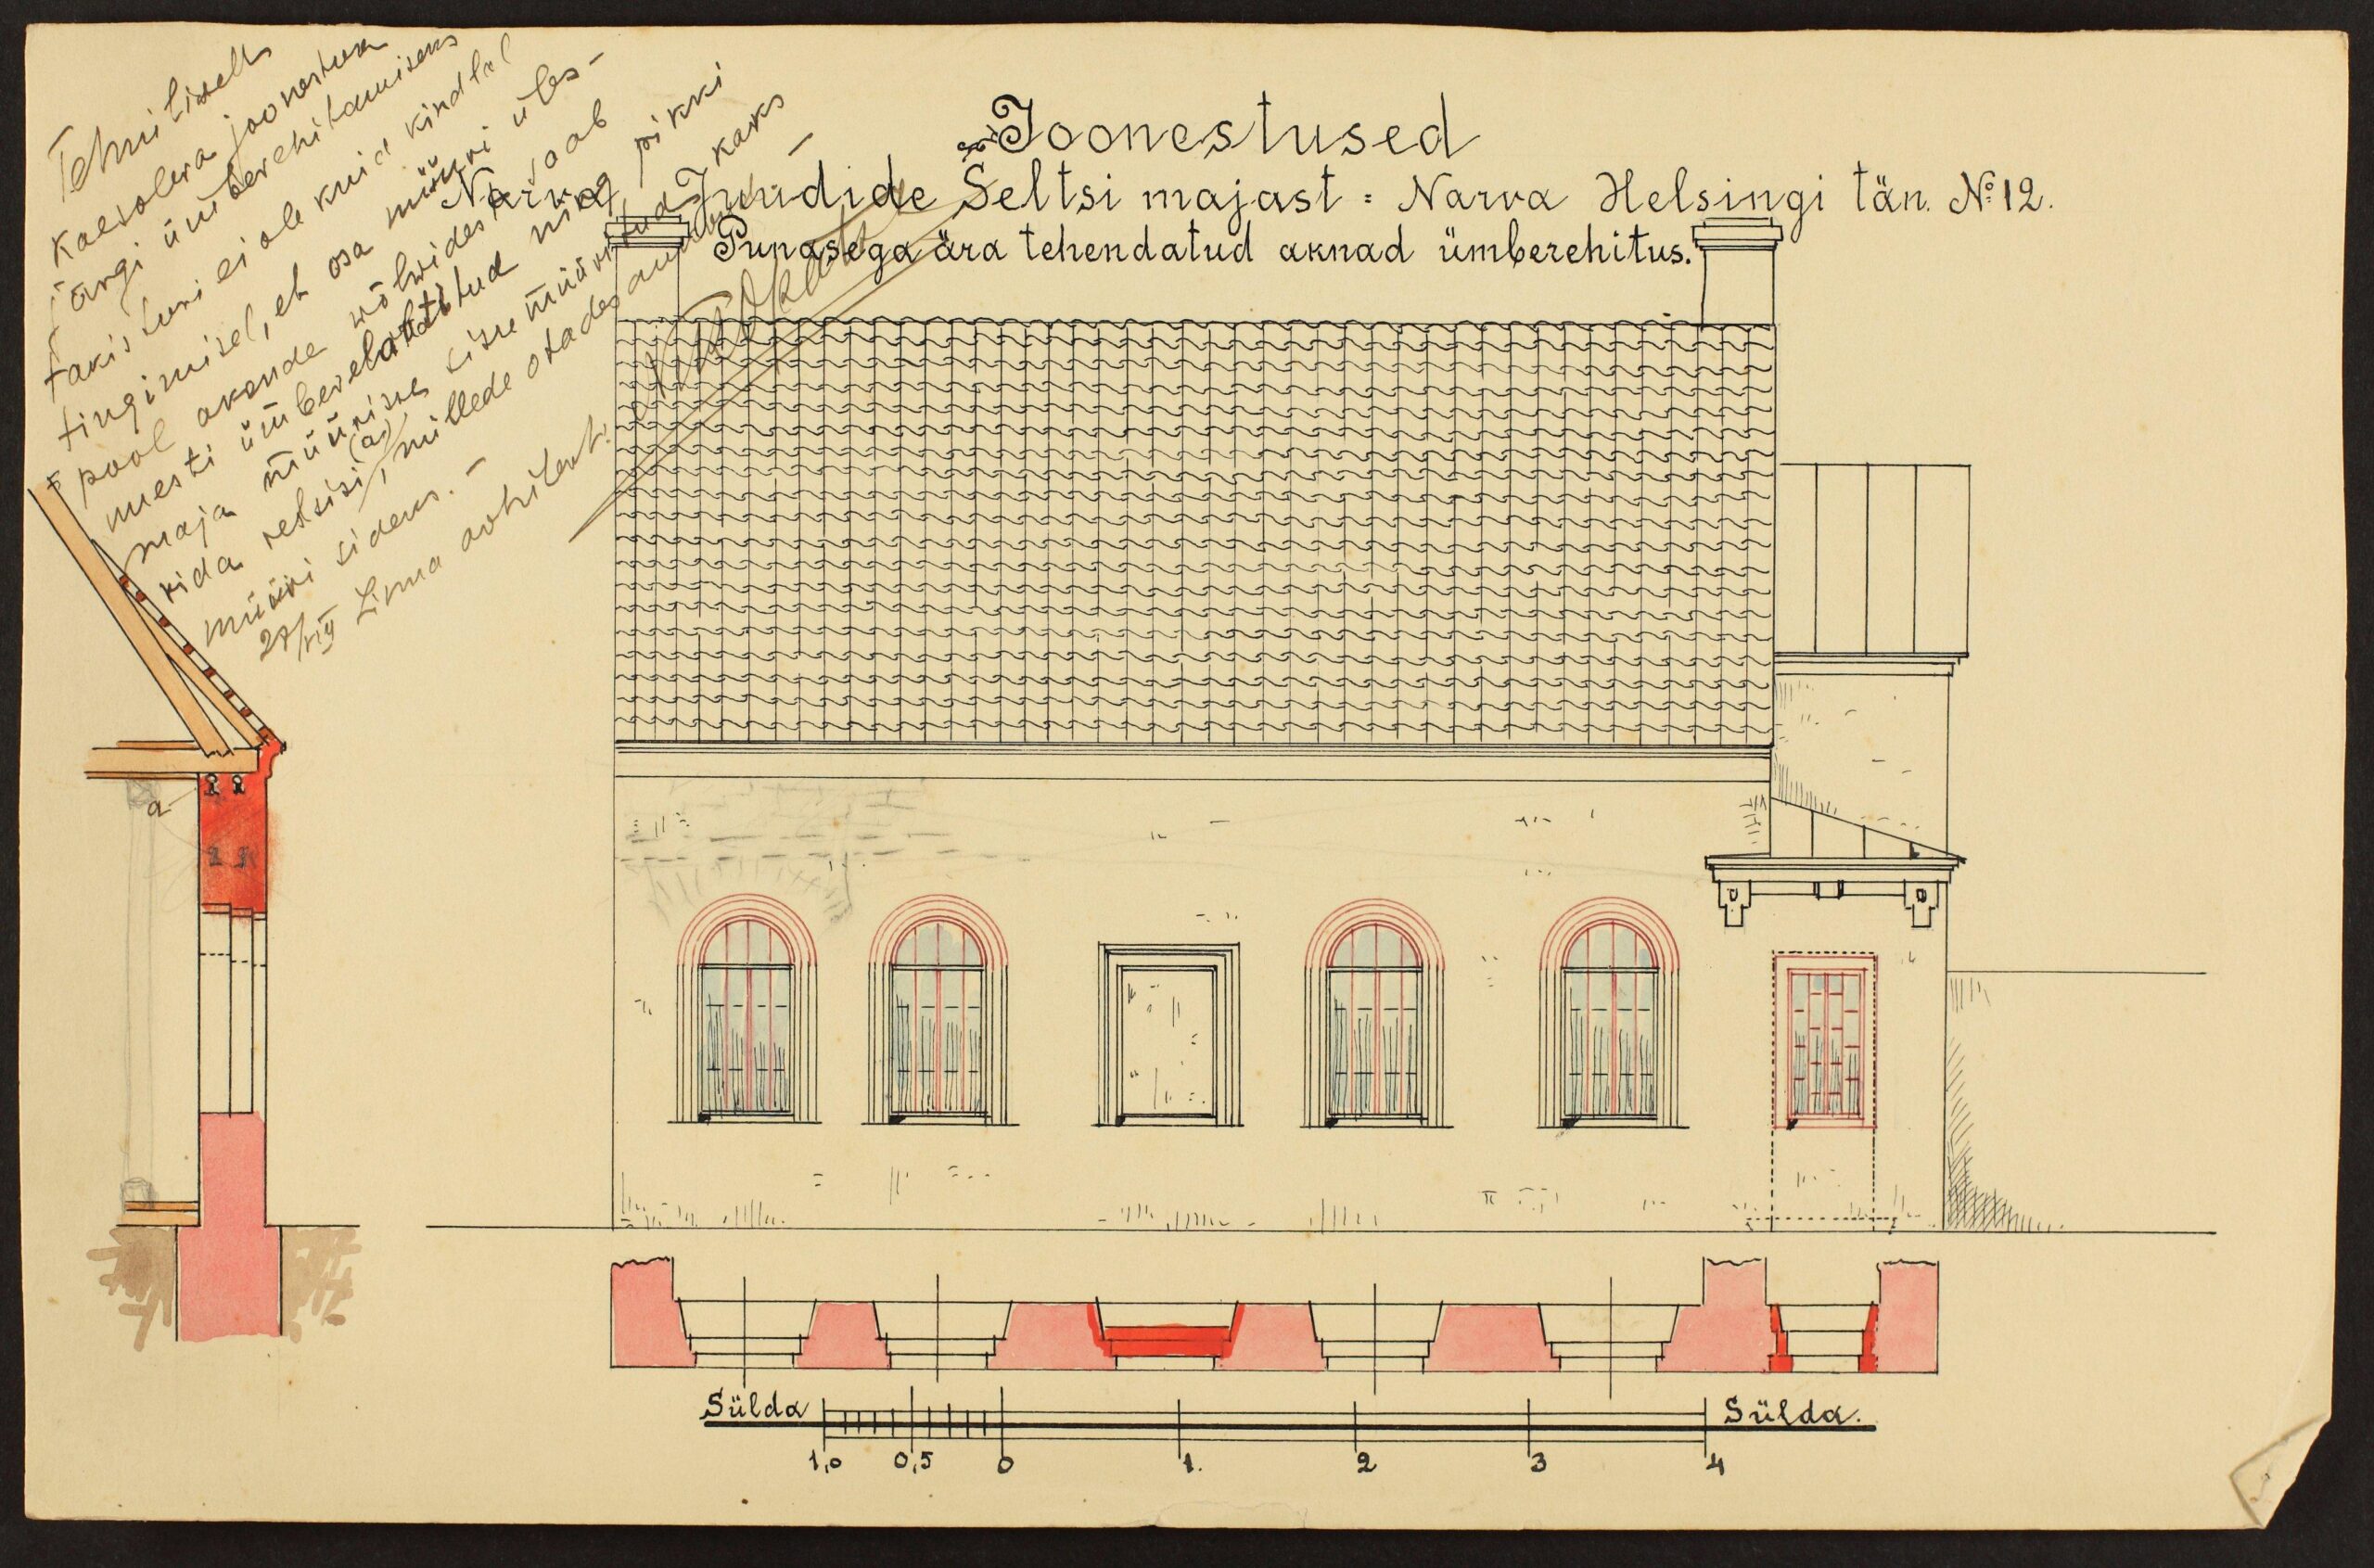 Joonestused
Narva Juudide Seltsi majast = Narva Helsingi tän. №12.
Punasega ära tehendatud aknad ümberehitus.
Tehniliselt
kaesoleva joonestuse
järgi ümberehitamiseks
takistusi ei ole kuid kindlal
tingimisel, et osa müüri üles-
pool akende võlwidest saab
uuesti ümberelattitud ning pikki
maja müürise sisse müüritud kaks
rida relssisi (a), millede otades
müüri sideks. -
27/VII Linna arhitekt:
a
Sülda
Sülda.
1,0 0,5 0 1. 2 3 4